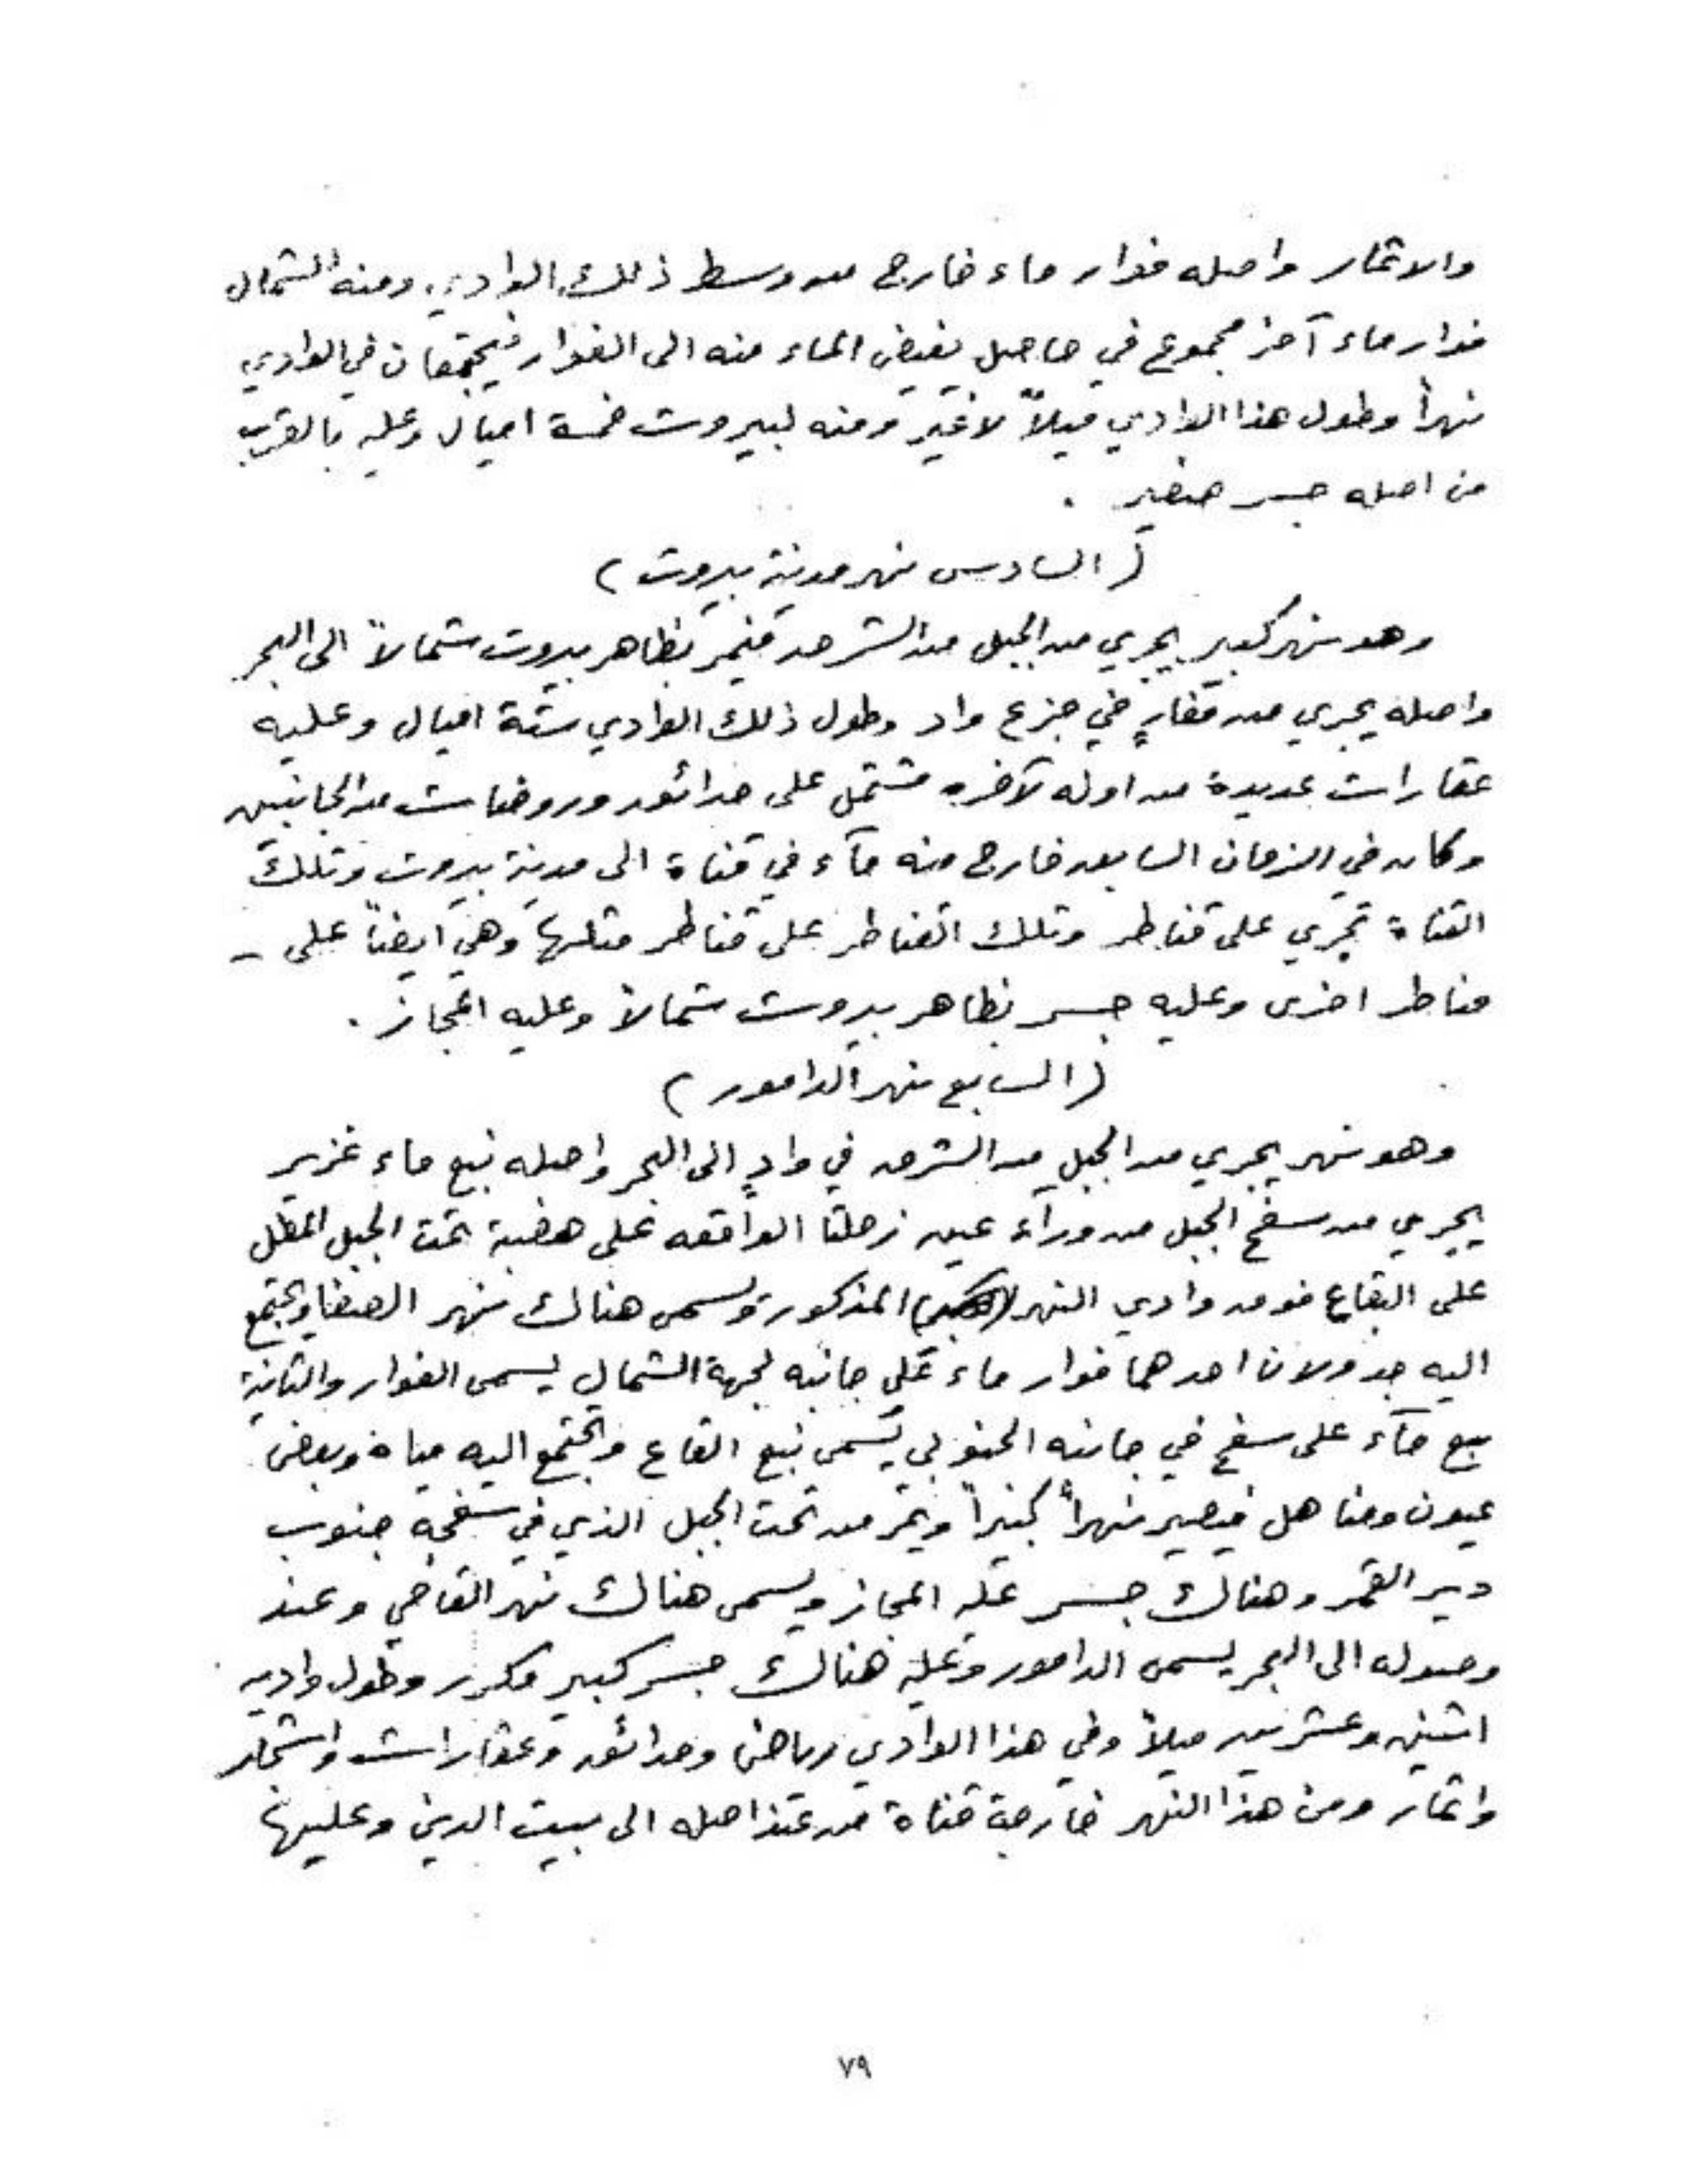 والاثمار واصله فوار ماء خارج من وسط ذلك الوادي ومنه لشمال
فوار ماء آخر مجموع في حاصل يفيض الماء منه الى الفوار فيجتمعان في الوادي
نهراً وطول هذا الوادي ميلاً لا غير ومنه لبيروت خمسة اميال وعليه بالقرب
من اصله جسر صغير .
( السادس نهر مدينة بيروت )
وهو نهر كبير يجري من الجبل من الشرق فيمر بظاهر بيروت شمالاً الى البحر
واصله يجري من مغار في جزع واد وطول ذلك الوادي ستة اميال وعليه
عقارات عديدة من اوله لآخره مشتمل على حدائق وروضات من الجانبين
وكان في الزمان السابق خارج منه مآء في قناة الى مدينة بيروت وتلك
القناة تجري على قناطر وتلك القناطر على قناطر مثلها وهي ايضاً على -
قناطر اخرى وعليه جسر بظاهر بيروت شمالاً وعليه المجاز .
( السابع نهر الدامور )
وهو نهر يجري من الجبل من الشرق في وادٍ الى البحر واصله نبع ماء غزير
يجري من سفح الجبل من ورآء عين زحلتا الواقعه على هضبة تحت الجبل المطل
على البقاع فوق وادي النهر المذكور ويسمى هناك نهر الصفا ويجتمع
اليه جدولان احدهما فوار ماء على جانبه لجهة الشمال يسمى الفوار والثانية
نبع مآء على سفح في جانبه الجنوبي يسمى نبع القاع ويجتمع اليه مياه وبعض
عيون ومناهل فيصير نهراً كبيراً ويمر من تحت الجبل الذي في سفحه جنوب
دير القمر وهناك جسر عليه المجاز ويسمى هناك نهر القاضي وعند
وصوله الى البحر يسمى الدامور وعليه هناك جسر كبير مكرر وطول واديه
اثنين وعشرين ميلاً وفي هذا الوادي رياض وحدائق وعقارات واشجار
واثمار ومن هذا النهر خارجة قناة من عند اصله الى بيت الدين وعليها
٧٩